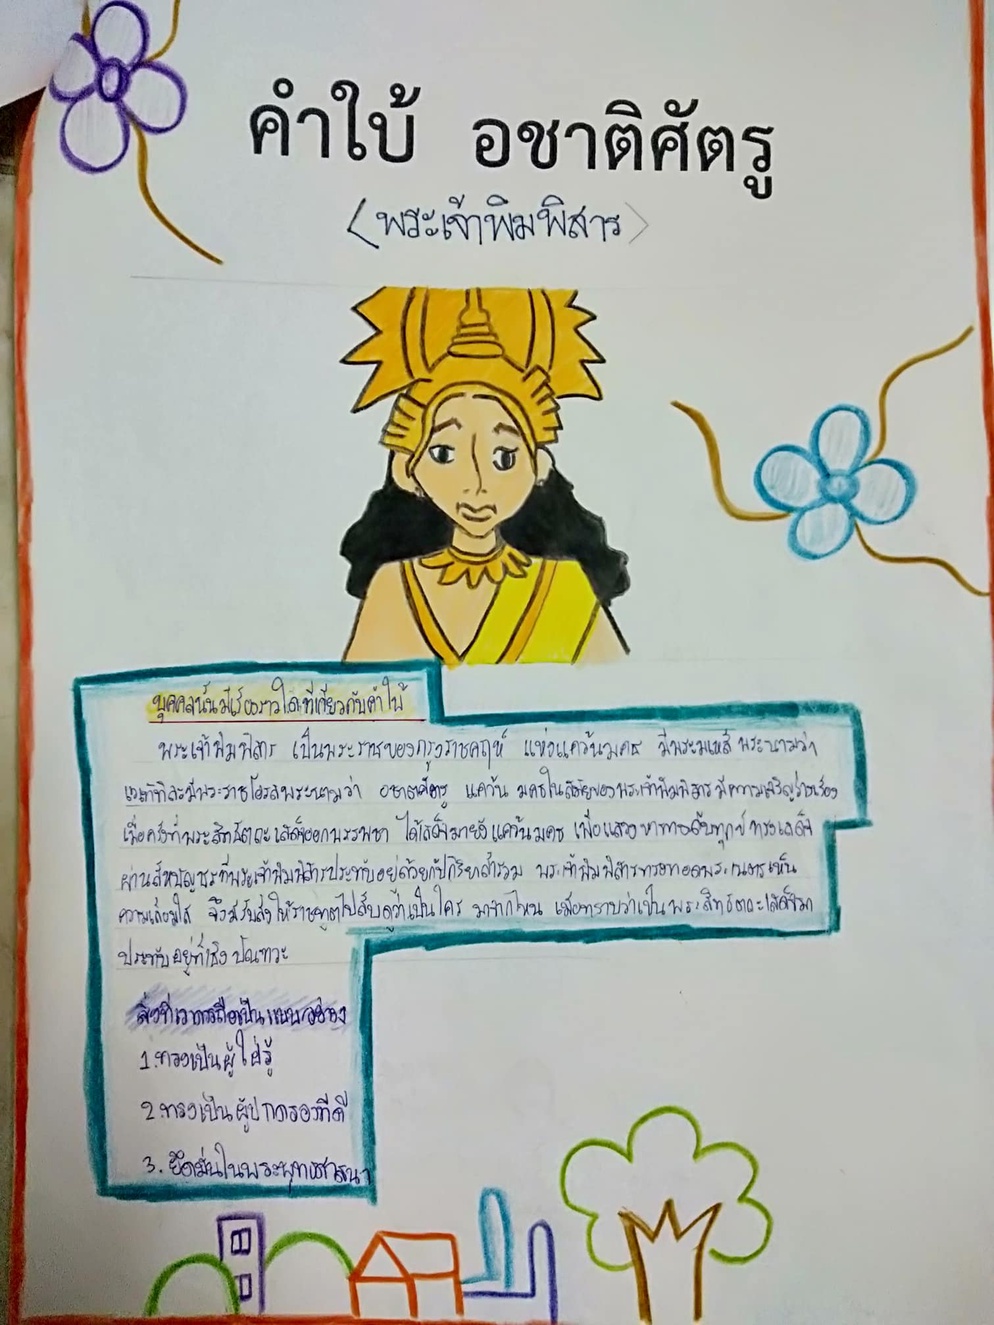 คำใบ้ อชาติศัตรู
<พระเจ้าพิมพิสาร>
บุคคลนั้นมีเรื่องราวใดที่เกี่ยวกับคำใบ้
พระเจ้าพิมพิสาร เป็นพระราชของกรุงราชคฤห์ แห่งแคว้นมคธ มีพระมเหสี พระนามว่า
เวเทหิและมีพระราชโอรสพระนามว่า อชาตศัตรู แคว้น มคธในสมัยของพระเจ้าพิมพิสาร มีความเจริญรุ่งเรือง
เมื่อครั้งที่พระสิทธัตถะเสด็จออกบรรพชา ได้เสด็จมายังแคว้นมคธ เพื่อแสวงหาทางดับทุกข์ ทรงเสด็จ
ผ่านสีหบัญชรที่พระเจ้าพิมพิสารประทับอยู่ด้วยกิริยาสำรวม พระเจ้าพิมพิสารทรงทอดพระเนตรเห็น
ความเลื่อมใส จึงมีรับสั่งให้ราชทูตไปสืบดูว่าเป็นใคร มาจากไหน เมื่อทราบว่าเป็นพระสิทธัตถะเสด็จมา
ประทับอยู่ที่เชิง ปัณฑวะ
สิ่งที่เราควรถือเป็นแบบอย่าง
1.ทรงเป็นผู้ใฝ่รู้
2.ทรงเป็นผู้ปกครองที่ดี
3. ยึดมั่นในพระพุทธศาสนา